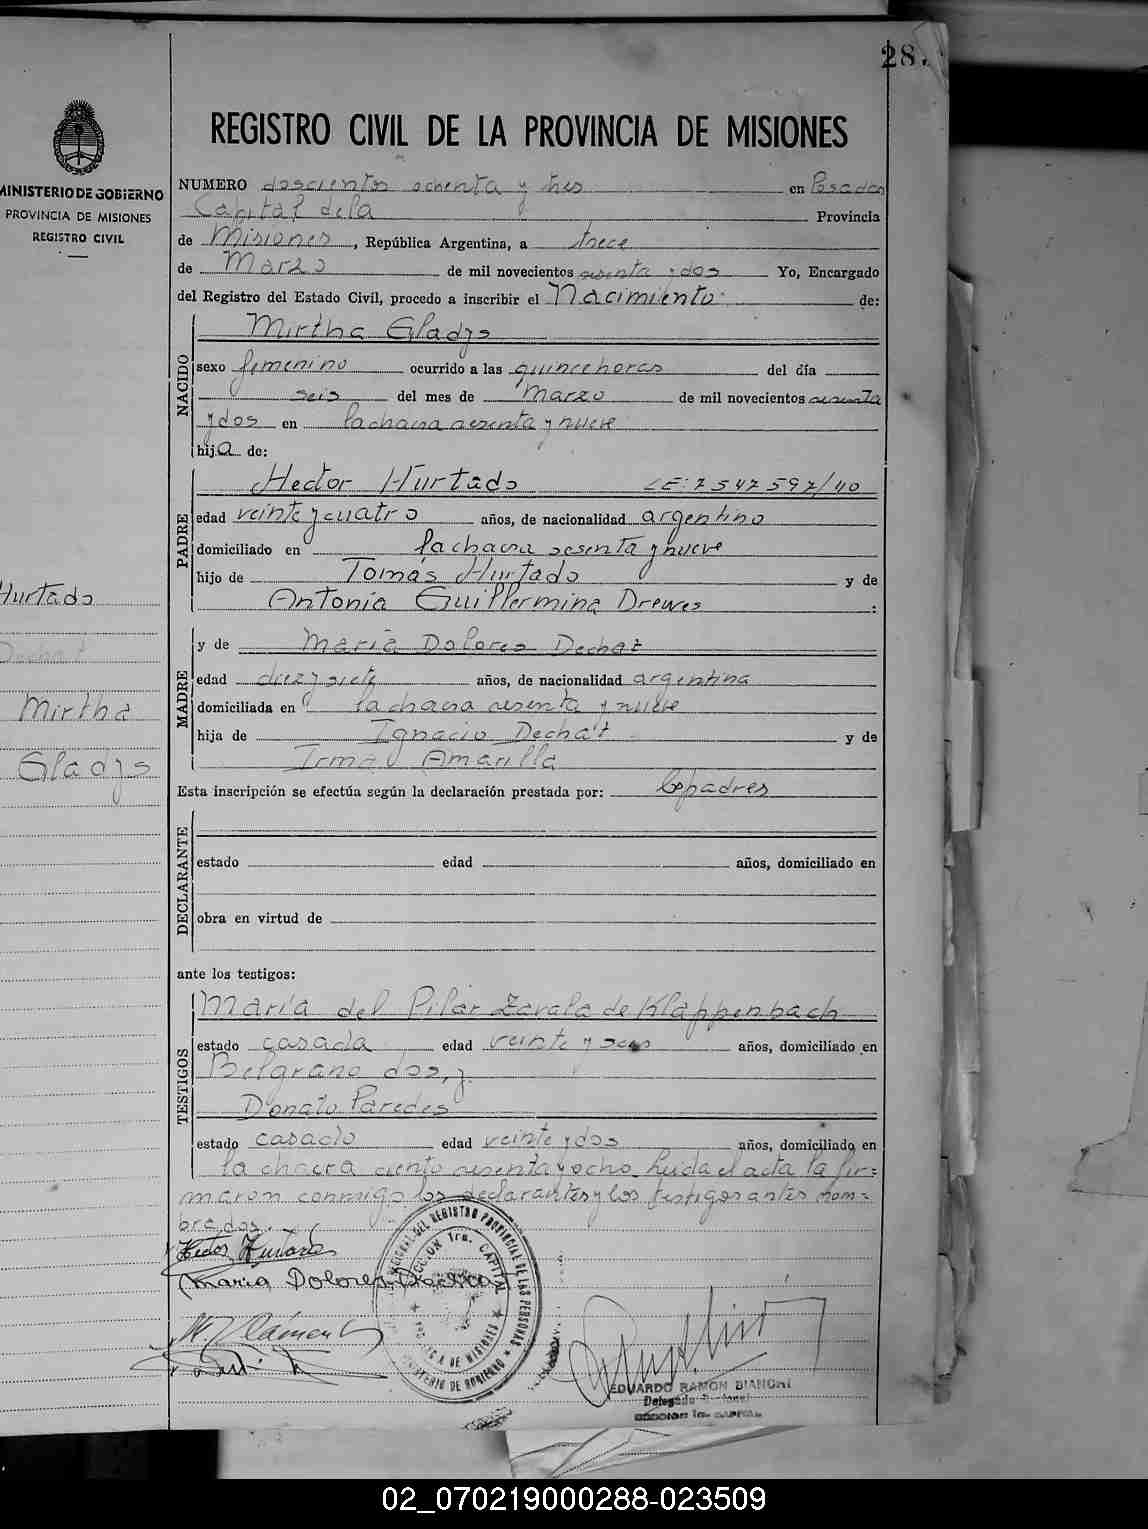 28.
MINISTERIO DE GOBIERNO
PROVINCIA DE MISIONES
REGISTRO CIVIL
Hurtado
Dechat
Mirtha
Gladys
REGISTRO CIVIL DE LA PROVINCIA DE MISIONES
NUMERO doscientos ochenta y tres en Posadas
Capital de la Provincia
de Misiones, República Argentina, a trece
de Marzo de mil novecientos sesenta y dos Yo, Encargado
del Registro del Estado Civil, procedo a inscribir el Nacimiento de:
NACIDO
Mirtha Gladys
sexo femenino ocurrido a las quince horas del día
seis del mes de Marzo de mil novecientos sesenta
y dos en la chacra sesenta y nueve
hija de:
PADRE
Hector Hurtado LE: 7547597/40
edad veinte y cuatro años, de nacionalidad argentino
domiciliado en la chacra sesenta y nueve
hijo de Tomás Hurtado y de
Antonia Guillermina Drewes :
MADRE
y de María Dolores Dechat
edad diez y siete años, de nacionalidad argentina
domiciliada en la chacra sesenta y nueve
hija de Ignacio Dechat y de
Irma Amarilla
Esta inscripción se efectúa según la declaración prestada por: los padres
DECLARANTE
estado edad años, domiciliado en
obra en virtud de
ante los testigos:
TESTIGOS
María del Pilar Zavala de Klappenbach
estado casada edad veinte y seis años, domiciliado en
Belgrano dos, y
Donato Paredes
estado casado edad veinte y dos años, domiciliado en
la chacra ciento sesenta y ocho. Leída el acta la fir=
maron conmigo los declarantes y los testigos antes nom=
brados.
Hector Hurtado
María Dolores Dechat
REGISTRO PROVINCIAL DE LAS PERSONAS
SECCION 1ra. CAPITAL
PROVINCIA DE MISIONES
MINISTERIO DE GOBIERNO
EDUARDO RAMON BIANCHI
Delegado
SECCION 1ra. CAPITAL
02_070219000288-023509